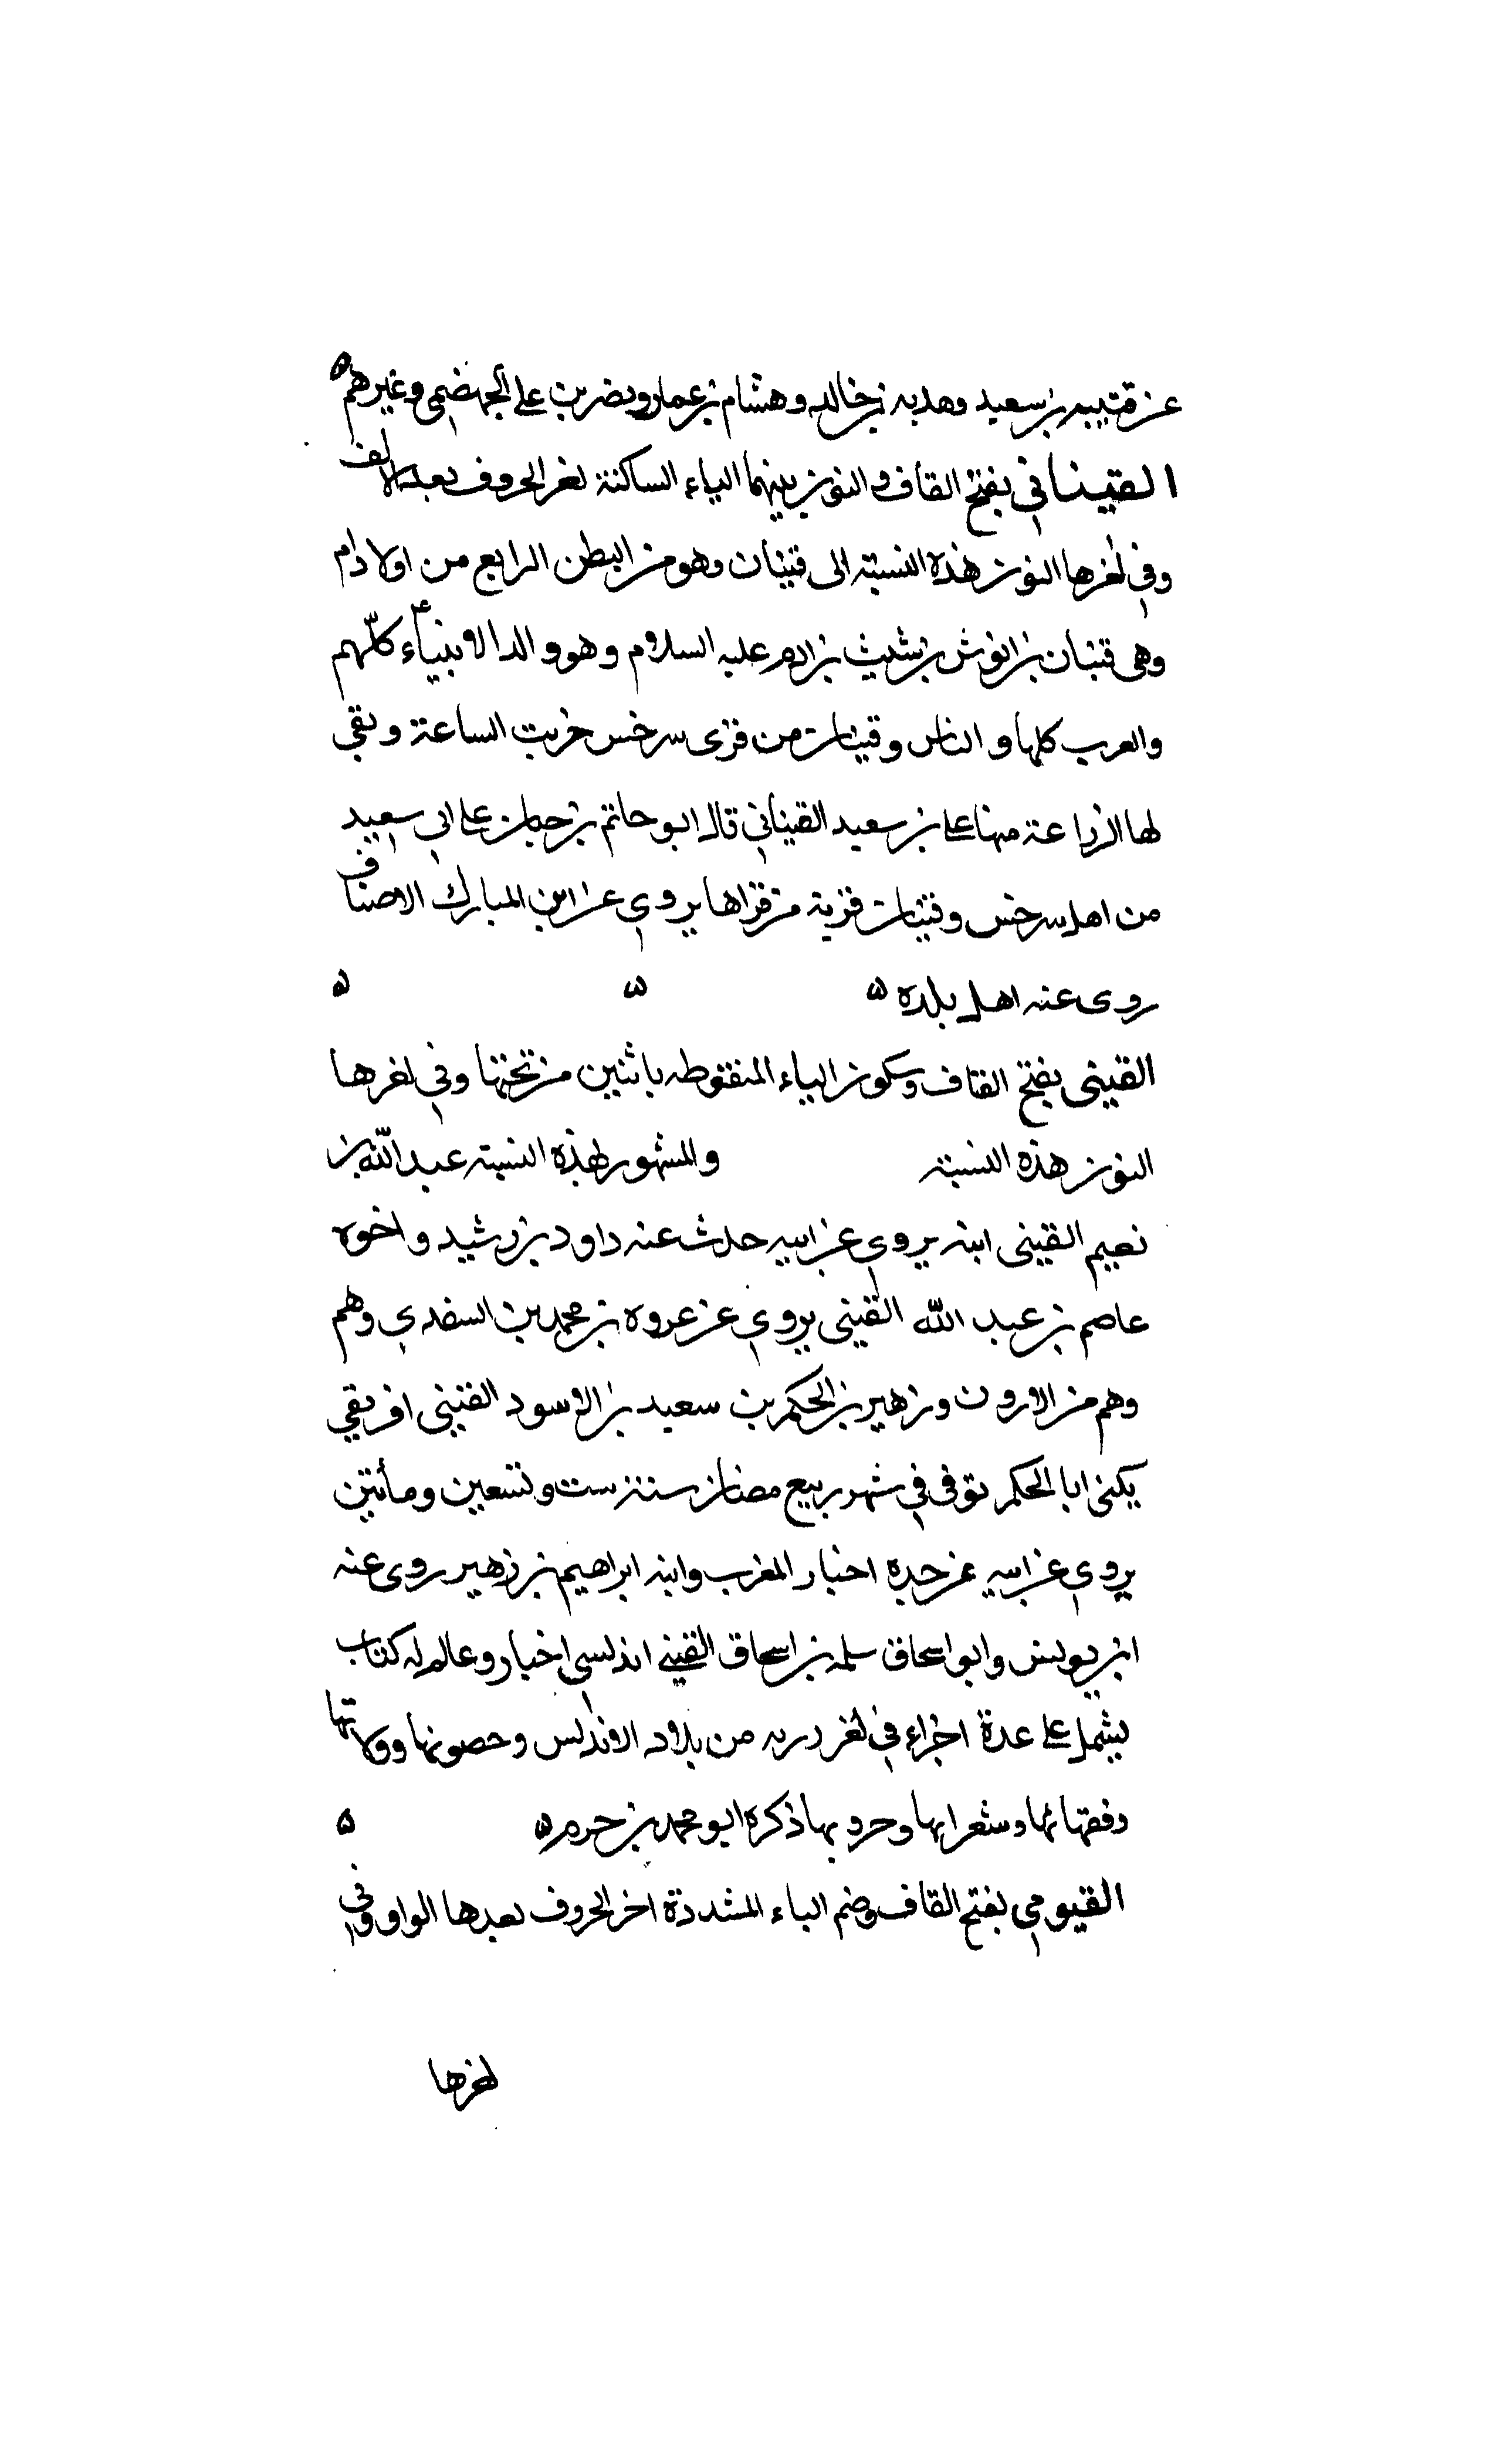 عن قتيبه بن سعيد وهدبه بن خالد وهشام بن عمار ونصر بن على الجهضمى وغيرهم ه
القيناني بفتح القاف والنون بينهما الياء الساكنة اخر الحروف بعدها الالف
وفي اخرها النون هذه النسبة الى قينان وهو من البطن الرابع من اولاد ادم
وهى قينان بن انوش بن شيث بن ادم عليه السلام وهو والد الانبياء كلهم
والعرب كلها والناس وقينان من قرى سرخس خربت الساعة وبقى
لها الزراعة منها على بن سعيد القيناني قال ابو حاتم بن حبان على ابى سعيد
من اهل سرخس وقينان قرية من قراها يروي عن ابن المبارك الاصناف
روى عنه اهل بلده ه ه ه
القينى بفتح القاف وسكون الياء المنقوطه باثنين من تحتها وفي اخرها
النون هذه النسبة والمشهور بهذه النسبة عبد الله بن
نعيم القينى ابنه يروي عن ابيه حدث عنه داود بن رشيد واخوه
عاصم بن عبد الله القينى يروي عن عروه بن محمد بن السعدي وهم
وهم من الاردن وزهير بن الحكم بن سعيد بن الاسود القينى افريقي
يكنى ابا الحكم توفى في شهر ربيع سنة ست وتسعين ومأتين
يروي عن ابيه عن جده اخبار المغرب وابنه ابراهيم بن زهير روى عنه
ابن يونس وابو اسحاق سلمه بن اسحاق القيني اندلسي اخبار وعالم له كتاب
يشمل على عدة اجزاء في اخر دريه من بلاد الاندلس وحصونها وولاتها
وفقهائها وشعرائها وحروبها ذكره ابو محمد بن حزم ه ه
القيومي بفتح القاف وضم الياء المشددة اخر الحروف بعدها الواو وفي
اخرها